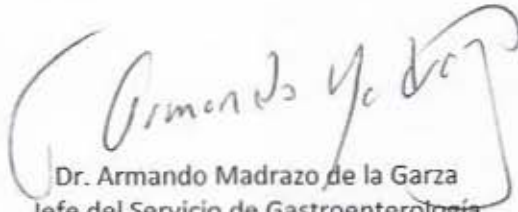 Armando
Dr. Armando Madrazo de la Garza
Jefe del Servicio de Gastroenterología